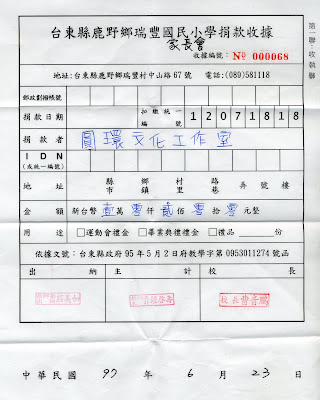 台東縣鹿野鄉瑞豐國民小學捐款收據
家長會
收據編號： № 000068
第一聯：收執聯
地址：台東縣鹿野鄉瑞豐村中山路67號 電話：(089)581118
郵政劃撥帳號
捐款日期 扣繳統一編號 12071818
捐款者 圓環文化工作室
IDN
(或統一編號)
地址 縣市 鄉鎮 村里 路巷 弄 號 樓
金額 新台幣 壹萬 零仟 貳佰 零拾 零元整
用途 □運動會禮金 □畢業典禮禮金 □禮品 份
依據文號：台東縣政府95年5月2日府教學字第0953011274號函
出納 主計 校長
校長曹晉鵬
中華民國 97 年 6 月 23 日